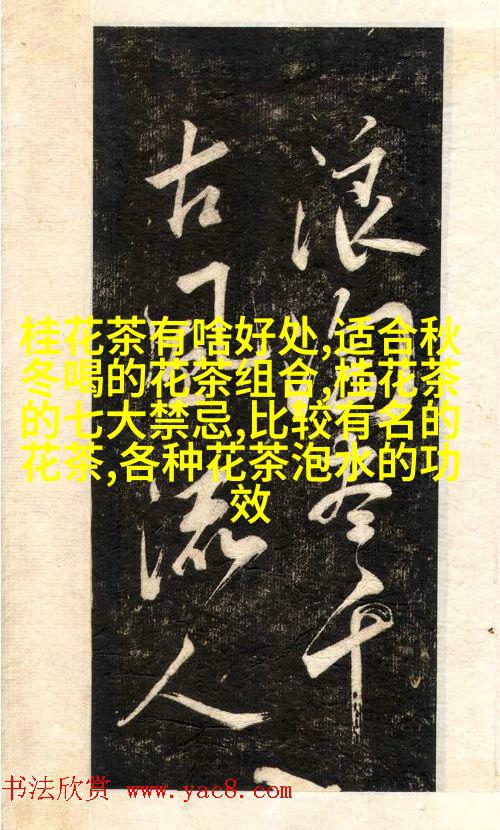 浪淘尽千
古风流人
桂花茶有啥好处,适合秋
冬喝的花茶组合,桂花茶
的七大禁忌,比较有名的
花茶,各种花茶泡水的功
效
书法欣赏 www.yac8.com